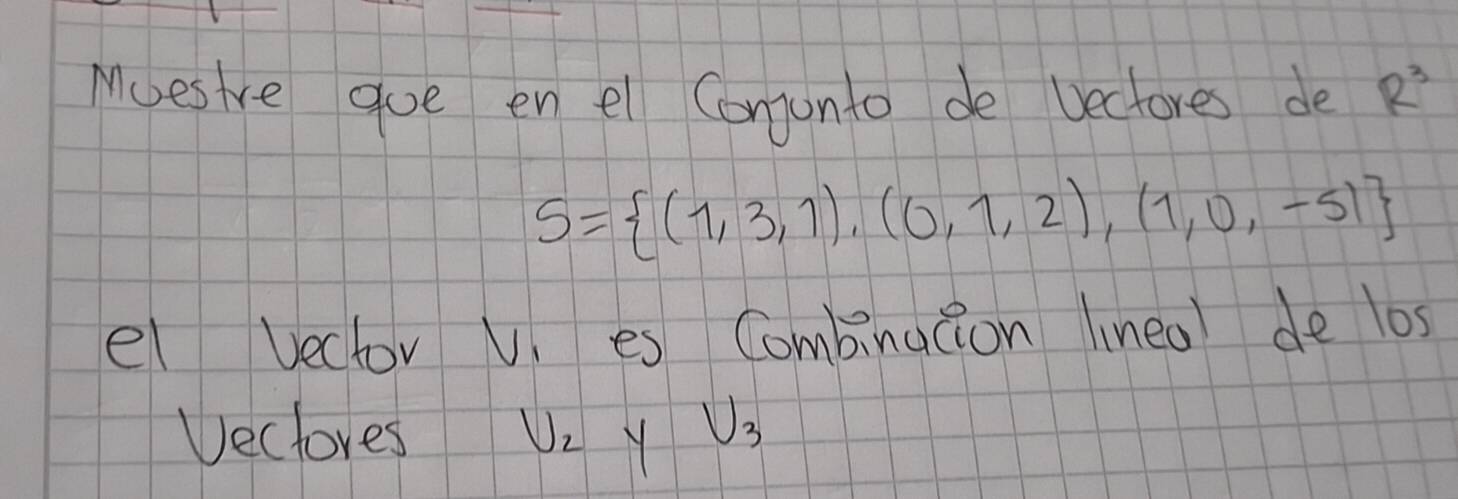 Muestre que en el Conjunto de Vectores de R³
S={(1,3,1),(0,1,2),(1,0,-5)}
el Vector V₁ es Combinación lineal de los
Vectores V₂ y V₃